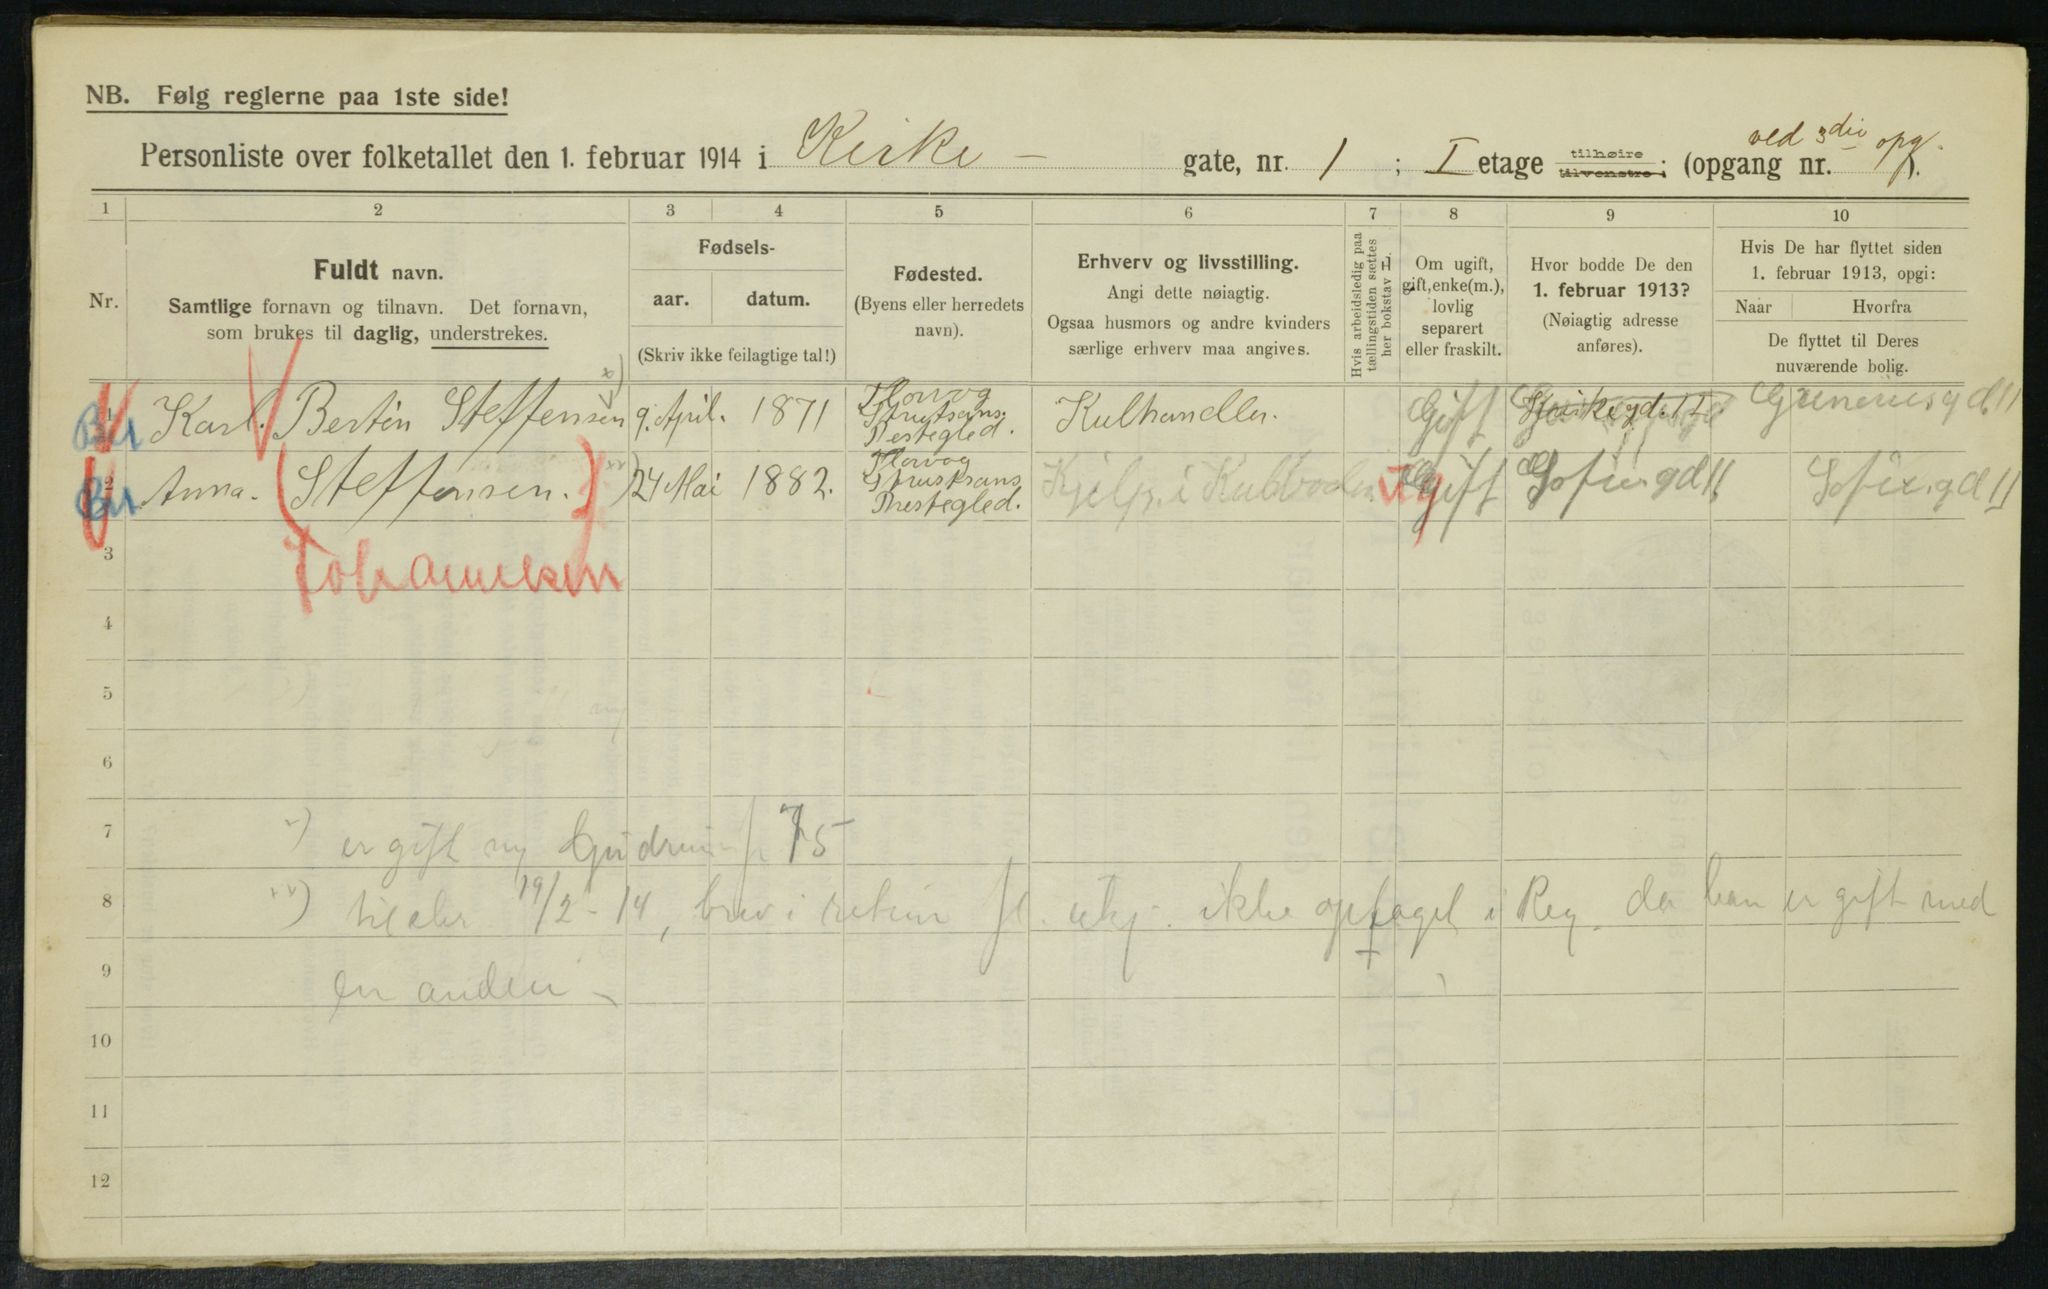 NB. Følg reglerne paa 1ste side!
Personliste over folketallet den 1. februar 1914 i Kirke - gate, nr. 1 ; I etage tilhøire tilvenstre ; (opgang nr. ved 3die opg. ).
1 2 3 4 5 6 7 8 9 10
Nr.
Fuldt navn.
Samtlige fornavn og tilnavn. Det fornavn,
som brukes til daglig, understrekes.
Fødsels-
aar. datum.
(Skriv ikke feilagtige tal!)
Fødested.
(Byens eller herredets
navn).
Erhverv og livsstilling.
Angi dette nøiagtig.
Ogsaa husmors og andre kvinders
særlige erhverv maa angives.
Hvis arbeidsledig paa
tællingstiden sættes
her bokstav L
Om ugift,
gift, enke(m.),
lovlig
separert
eller fraskilt.
Hvor bodde De den
1. februar 1913?
(Nøiagtig adresse
anføres).
Hvis De har flyttet siden
1. februar 1913, opgi:
Naar Hvorfra
De flyttet til Deres
nuværende bolig.
1 Karl. Bertin Steffensen x) 9. April. 1871 Prestegled. Kulhandler. Gift
2 Anna. (Steffensen.) xx) 24 Mai 1882. Prestegled. Hjelp. i Gift Sofie.gd 11 Sofie.gd 11
3 Johannesen
4
5
6
7 x) er gift m/ Gudrun f. 75
8 xx) 19/2-14, brev i retur ikke optaget i Reg. da han er gift med
9 en anden -
10
11
12